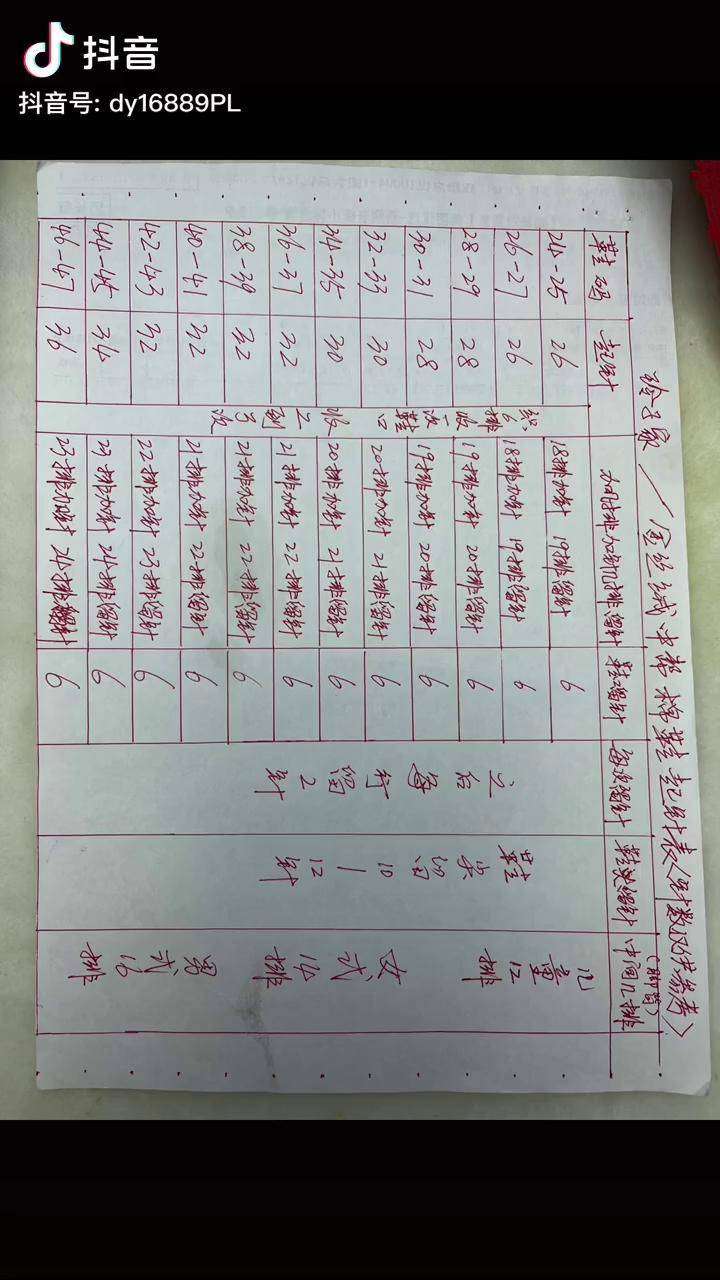 抖音
抖音号: dy16889PL
玲子家／金丝绒中帮棉鞋起针表〈针数仅供参考〉
鞋码 起针 如何排加针几排留针 鞋口留针 每次留针 鞋尖留针 中间几排(脚背)
24-25 26 18排加针 19排留针 6
26-27 26 18排加针 19排留针 6
28-29 28 19排加针 20排留针 6
30-31 28 19排加针 20排留针 6
32-33 30 20排加针 21排留针 6
34-35 30 20排加针 21排留针 6
36-37 32 21排加针 22排留针 6
38-39 32 21排加针 22排留针 6
40-41 32 21排加针 22排留针 6
42-43 32 22排加针 23排留针 6
44-45 34 23排加针 24排留针 6
46-47 36 23排加针 24排留针 6
织6排收一次鞋口
之后每行留2针
鞋尖留10-12针
儿童12排
女式14排
男式16排